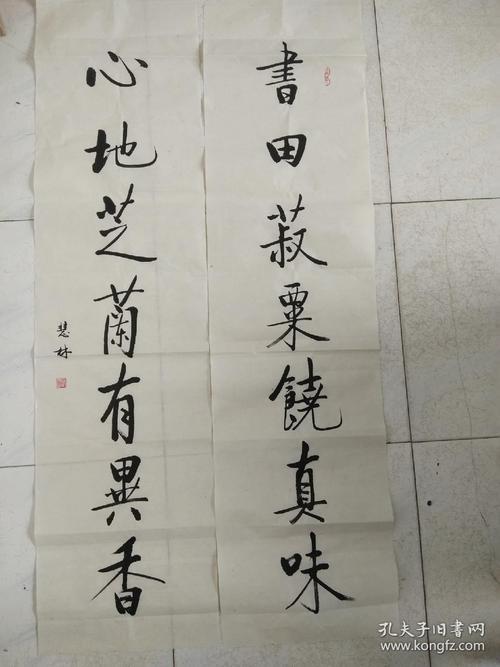 書田菽粟饒真味
心地芝蘭有異香
慧林
孔夫子旧书网
www.kongfz.com